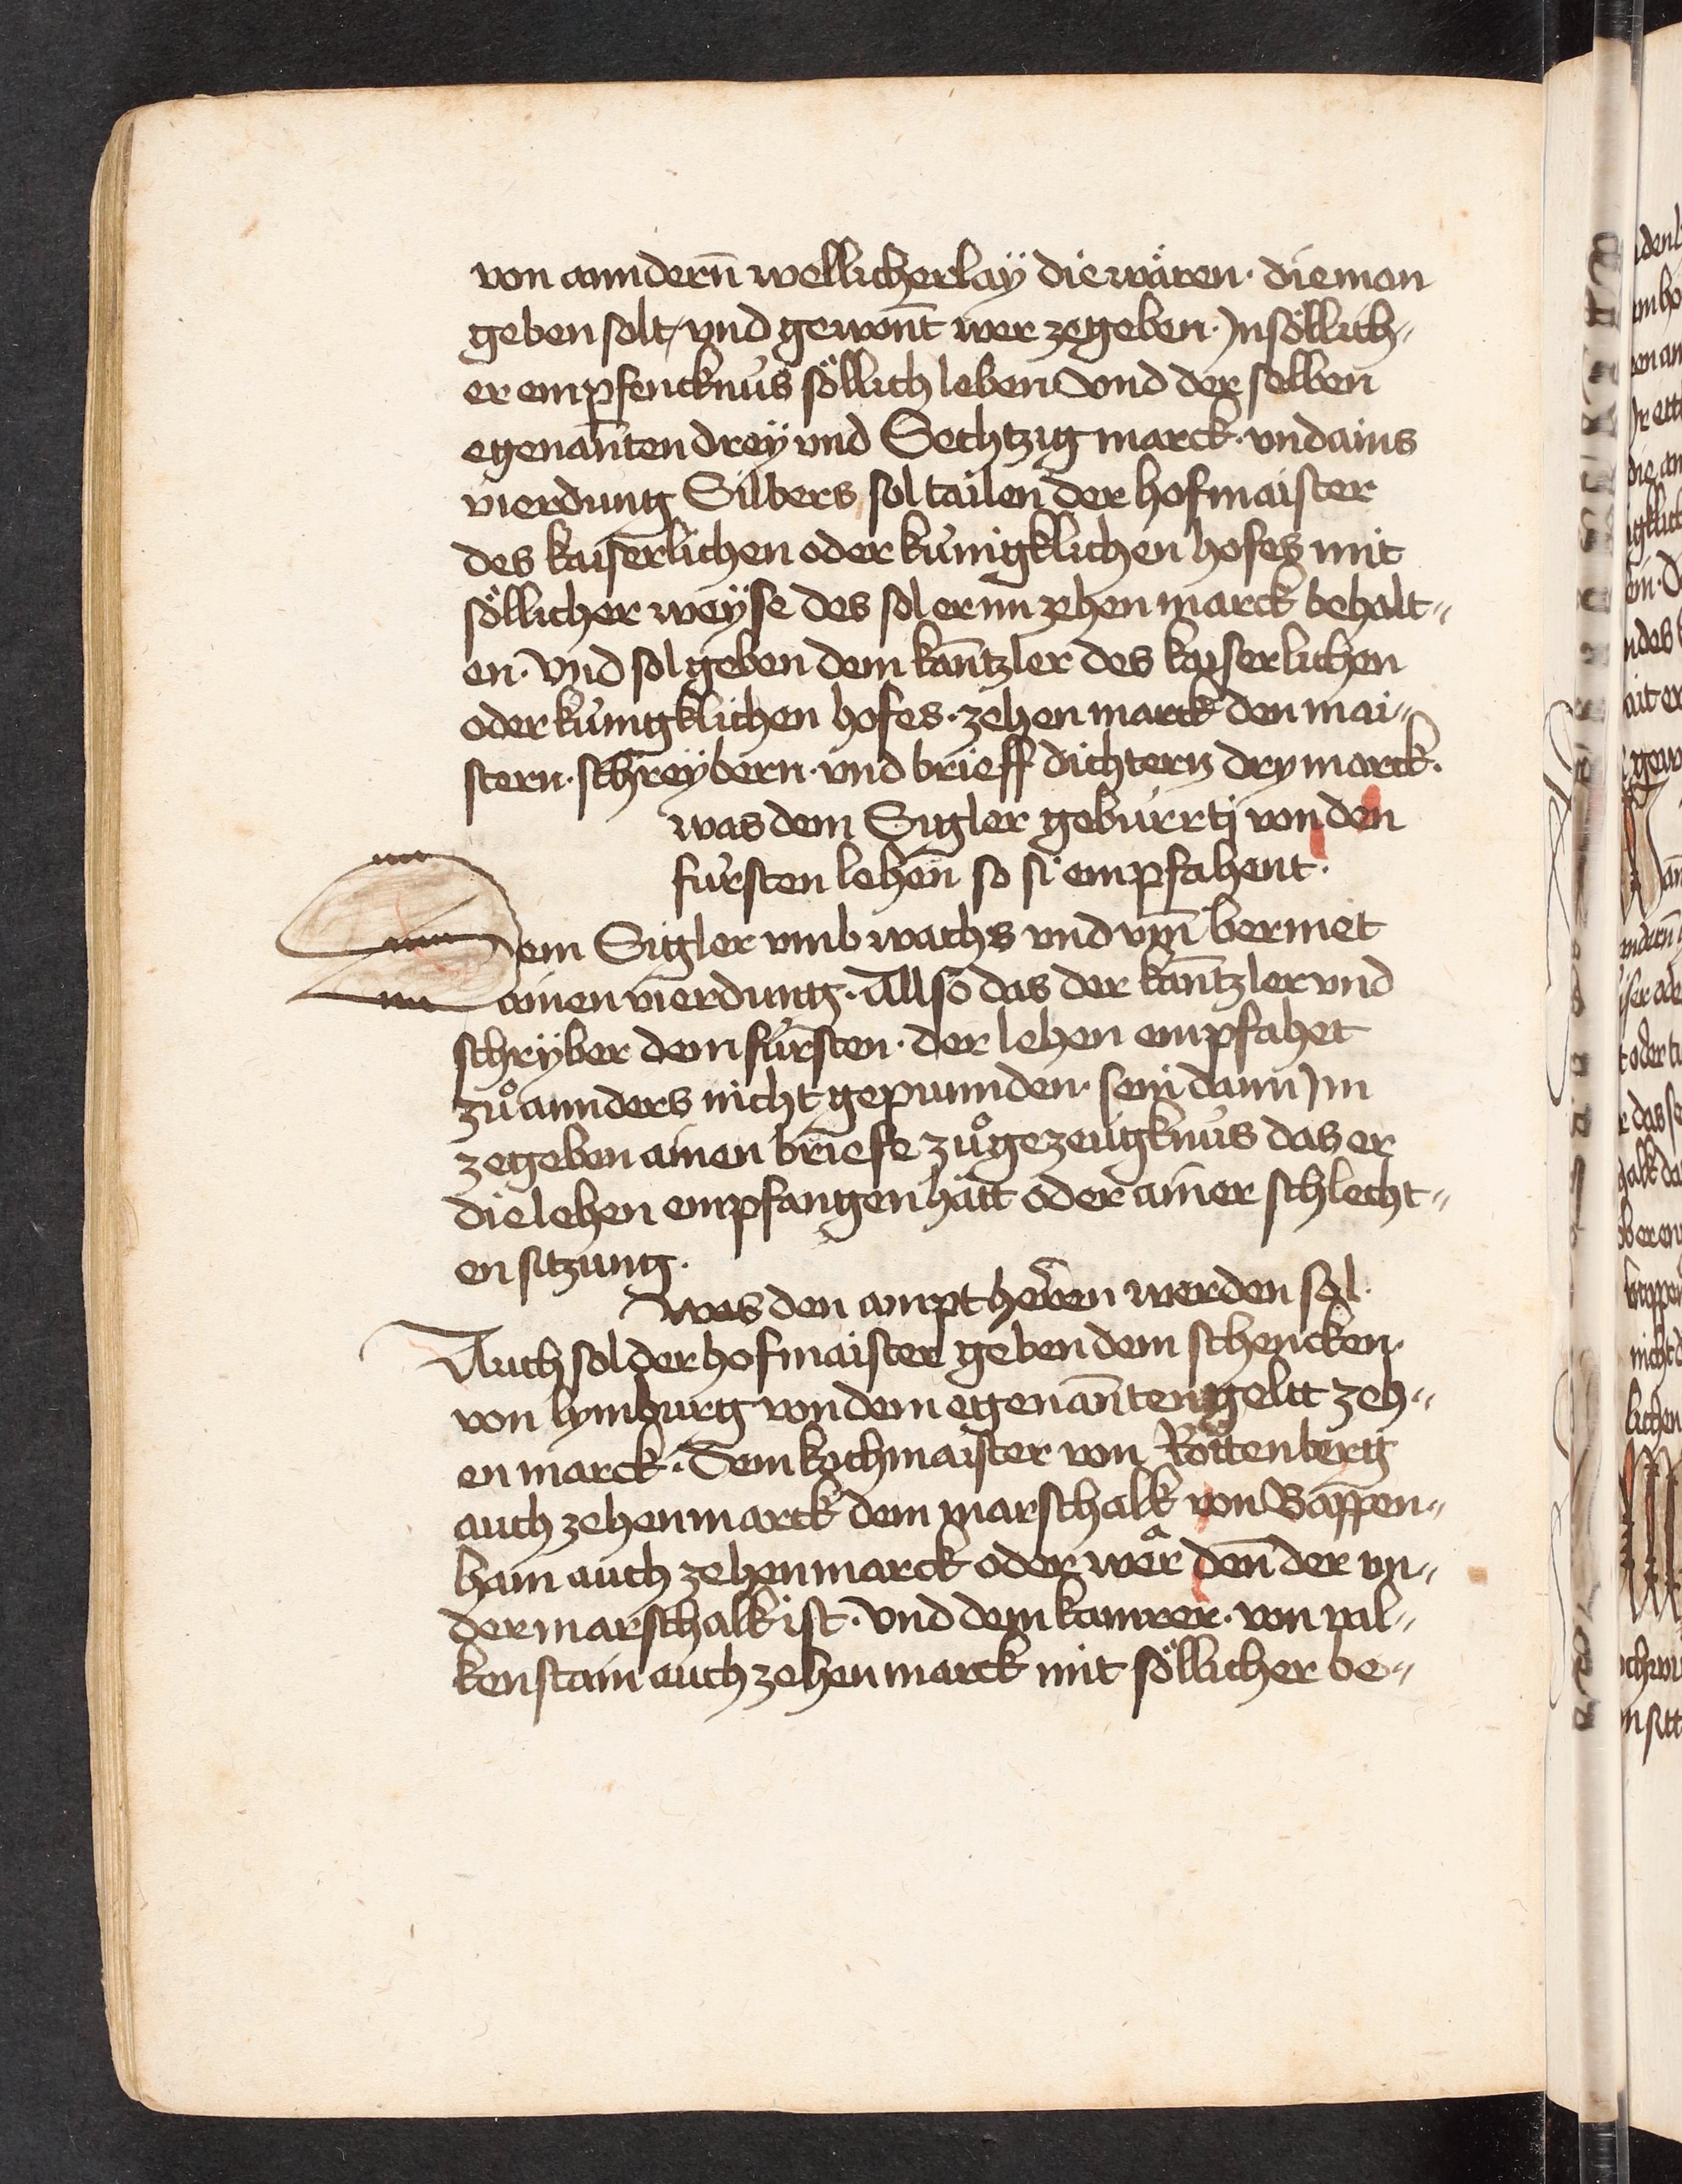 von annderñ wellicherlaÿ die wären · die man
geben solt / vnd gewont wer zegeben · Jn söllich„
er empfencknus söllich leben Vnd der selben
egenanten dreÿ vnd Sechtzig marck · vnd ains
vierdung Silbers sol tailen der hofmaister
des kaiserlichen oder kunigklichen hofes mit
söllicher weÿse des sol er im zehen marck behalt„
en · Vnd sol geben dem kantzler des kaiserlichen
oder kunigklichen hofes · zehen marck den mai„
stern · schreybern · vnd brieff dichtern dry marck ·
was dem Sigler geburrtj von den
fursten lehen so si empfahent ·
Dem Sigler vmb wachs vnd vm̄ bermet
ainen vierdung · Allso das der kantzler vnd
schryber dem fürsten · der lehen empfahet
zů annders nicht gepunnden · sein dann Jm
zegeben ainen briefe zů gezeugknus das er
die lehen empfangen hatt oder ainer schlecht„
en sitzung ·
Was den ampt heren werden sol ·
Auch sol der hofmaister geben dem schencken ·
von lymburg von dem egenanten geltt zeh„
en marck · Dem kochmaister von Rottenberg
auch zehen marck dem marschalk von Bappen„
haim auch zehen marck oder wer den der vn„
der marschalk ist · Vnd dem kamrer · von val„
kenstain auch zehen marck mit söllicher be„